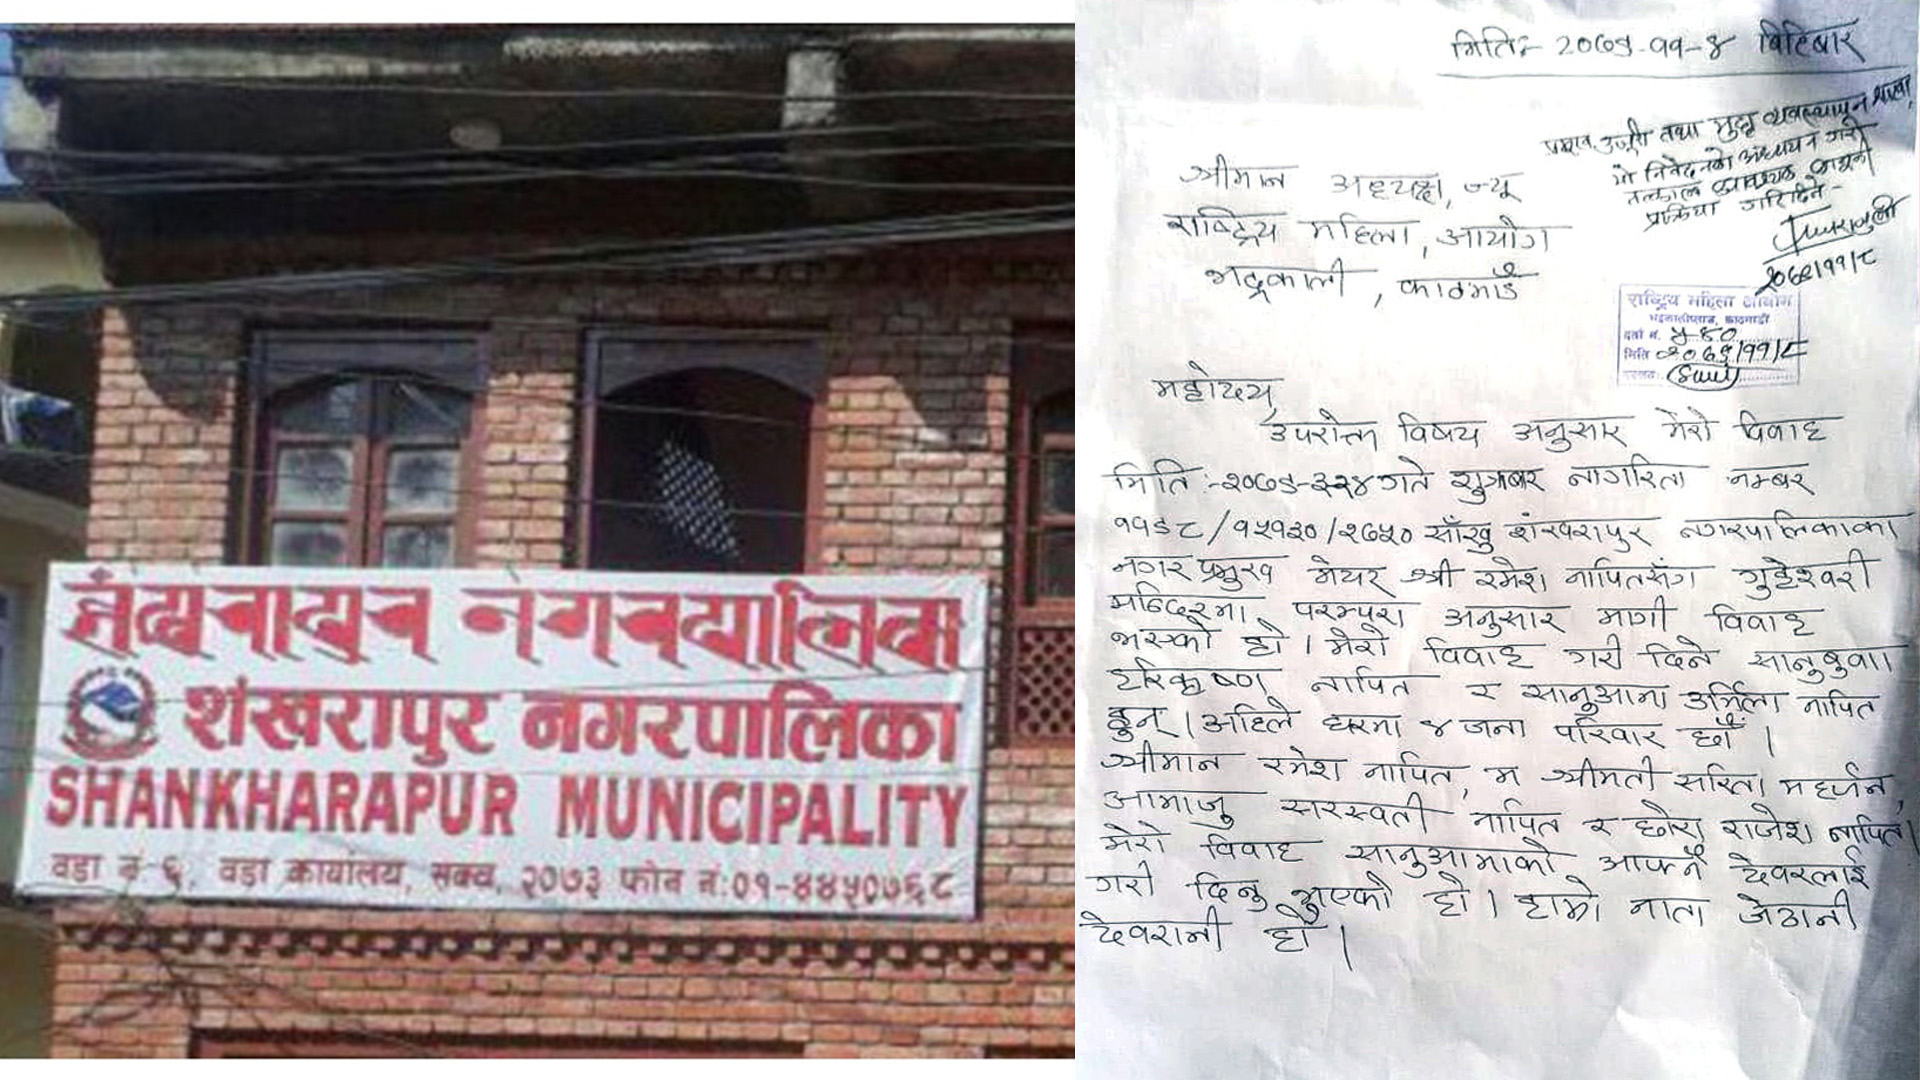 नगरपालिका
शंखरापुर नगरपालिका
SHANKHARAPUR MUNICIPALITY
वडा नं ६, वडा कार्यालय, सक्व, २०७३ फोन नं:०१-४४५०७६८
मिति:- २०७९-११-४
प्रमुख उजुरी तथा मुद्दा व्यवस्थापन शाखा,
यो निवेदनको अध्ययन गरी
तत्काल आवश्यक कानूनी
प्रक्रिया
श्रीमान अध्यक्ष, ज्यू
राष्ट्रिय महिला, आयोग
भद्रकाली, काठमाडौँ
राष्ट्रिय महिला आयोग
भद्रकालीप्लाजा, काठमाडौं
दर्ता नं.
मिति २०७९/११/८
महोदय,
उपरोक्त विषय अनुसार मेरो विवाह
मिति :- गते शुक्रबार नागरिता नम्बर
साँखु शंखरापुर नगरपालिकाका
नगर प्रमुख मेयर श्री रमेश नापितसँग गुहेश्वरी
मन्दिरमा परम्परा अनुसार मागी विवाह
भएको हो । मेरो विवाह गरी दिने सानुबुवा
हरिकृष्ण नापित र सानुआमा उर्मिला नापित
हुन् । अहिले घरमा ४ जना परिवार छौँ ।
श्रीमान रमेश नापित, म श्रीमती सरिता महर्जन,
आमाजु सरस्वती नापित र छोरा राजेश नापित ।
मेरो विवाह सानुआमाको आफ्नै देवरलाई
गरी दिनु भएको हो । हाम्रो नाता जेठानी
देवरानी हो ।